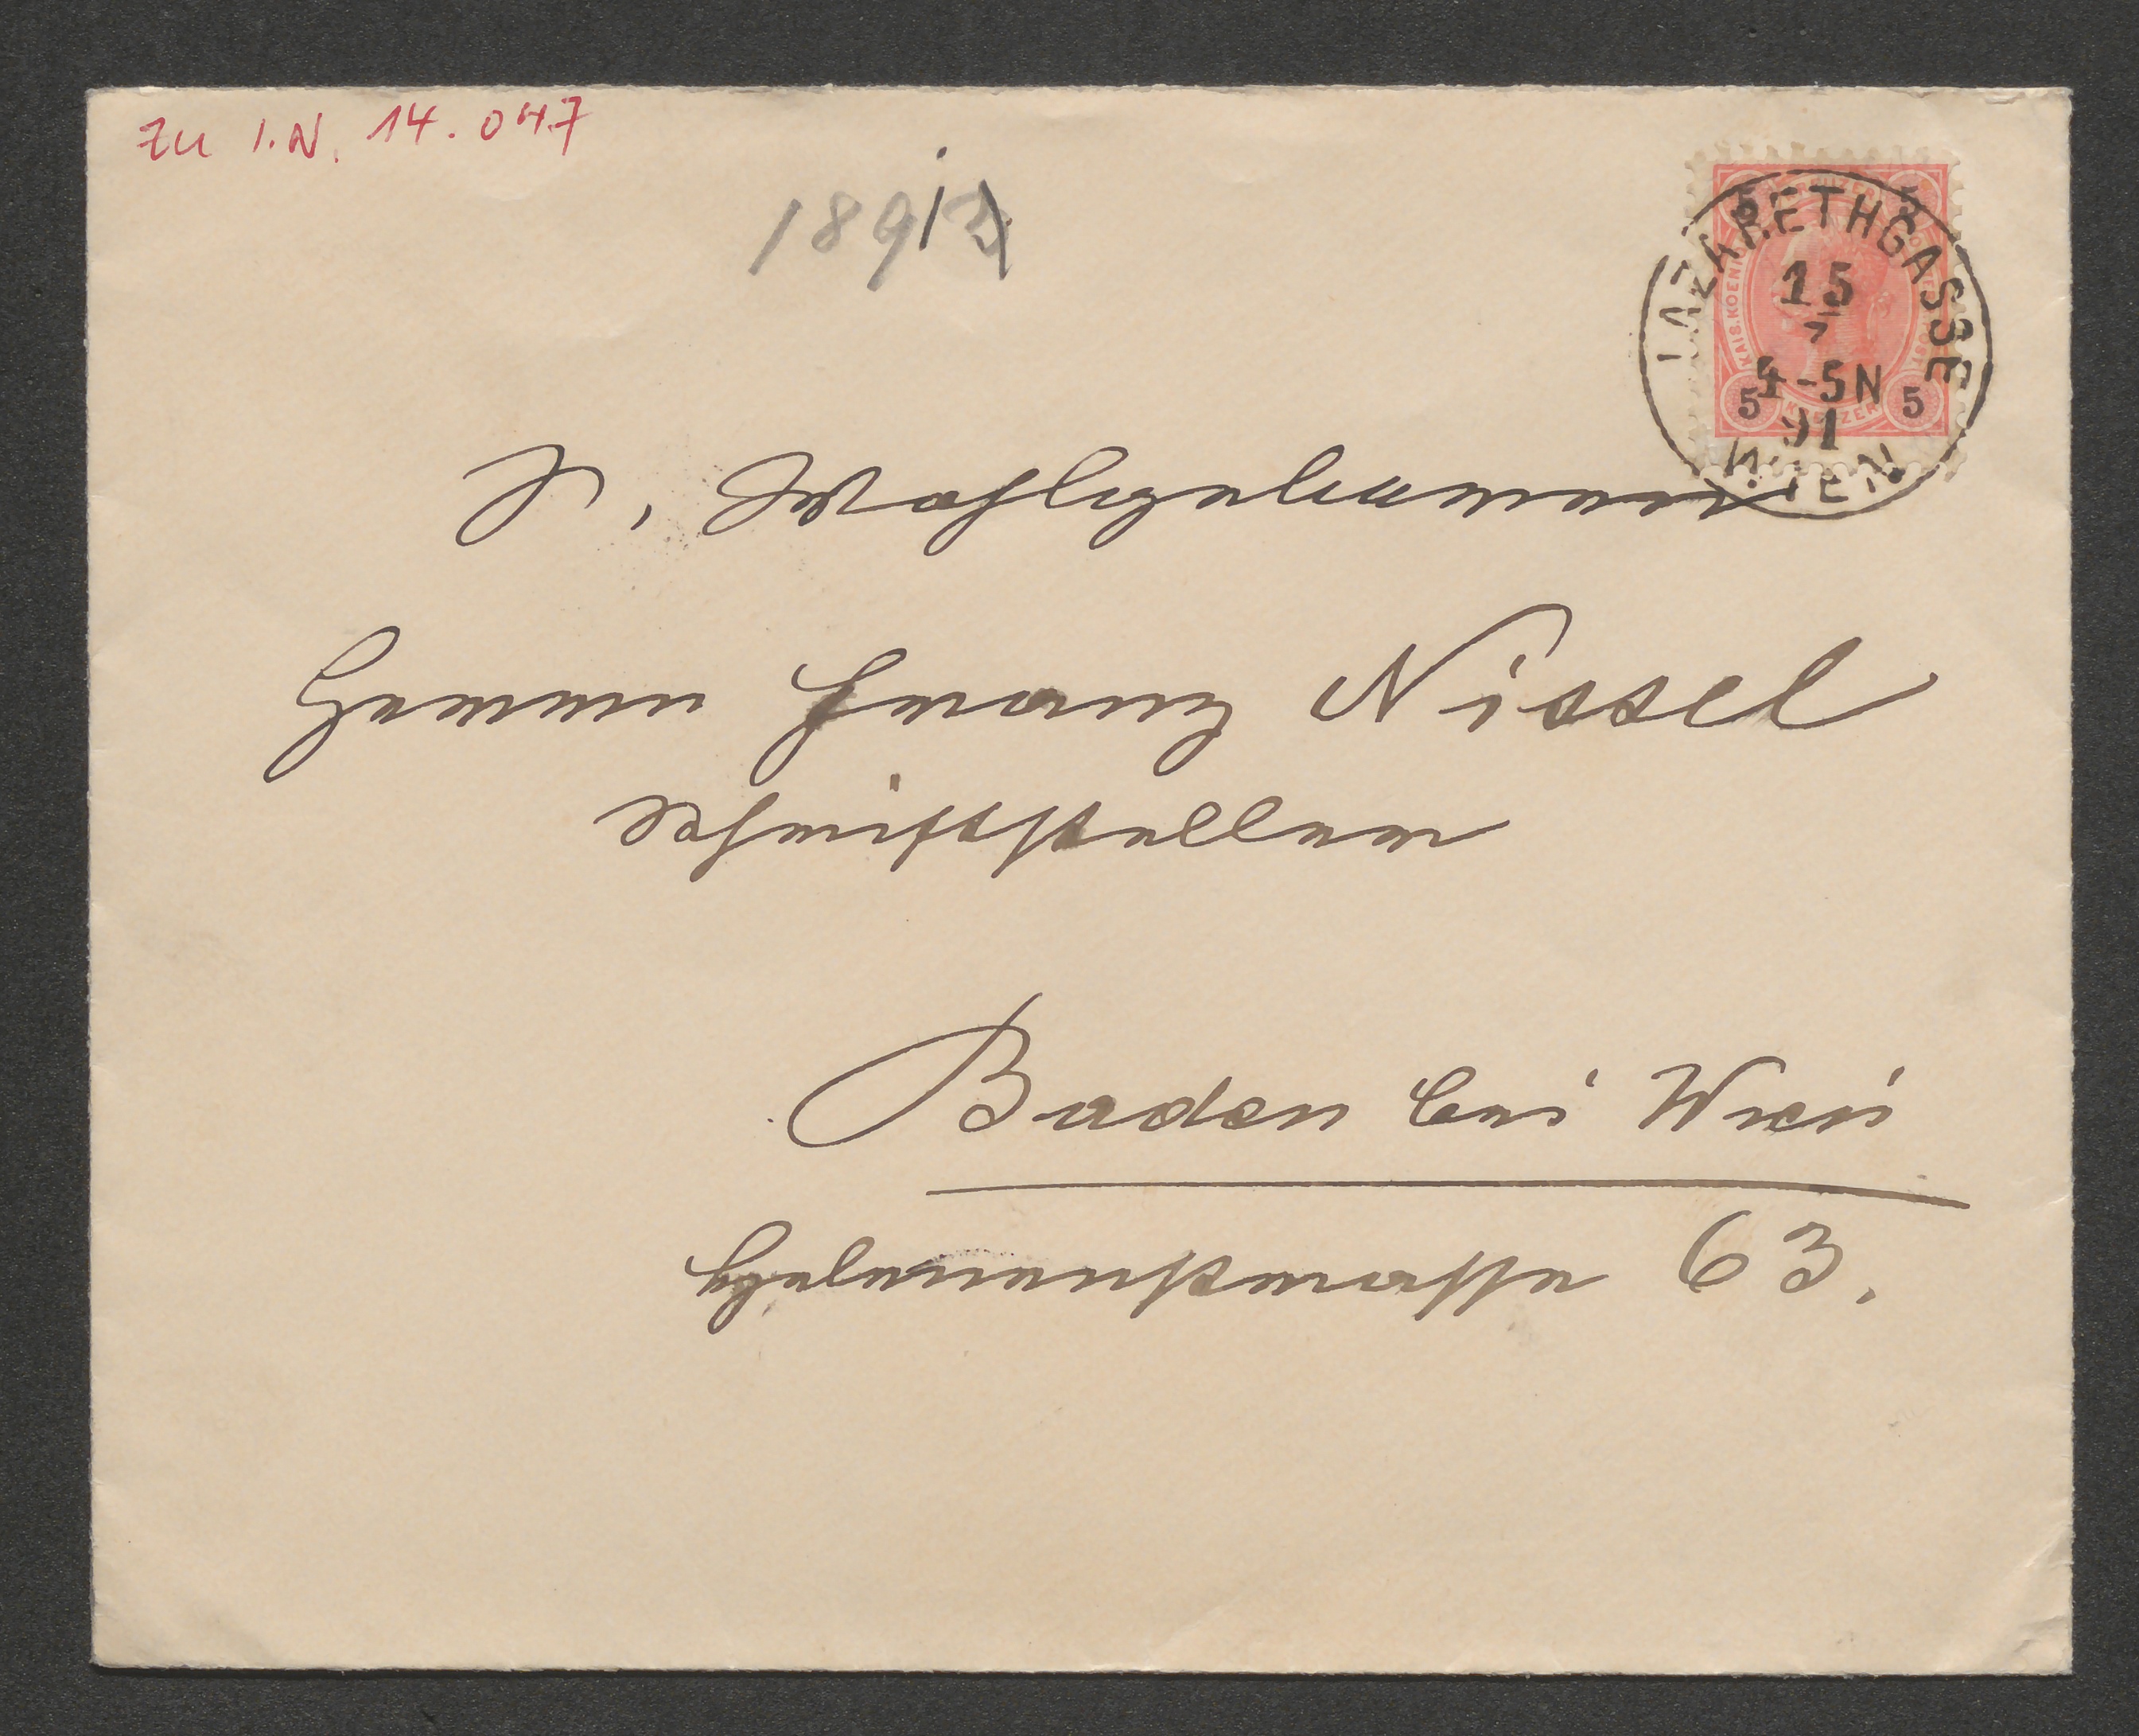 Zu I.N. 14.047
1891
LAZARETHGASSE
15
7
4-5N
91
WIEN
5 5
S. Wohlgeboren
Herrn Franz Nissel
Schriftsteller
Baden bei Wien
63.